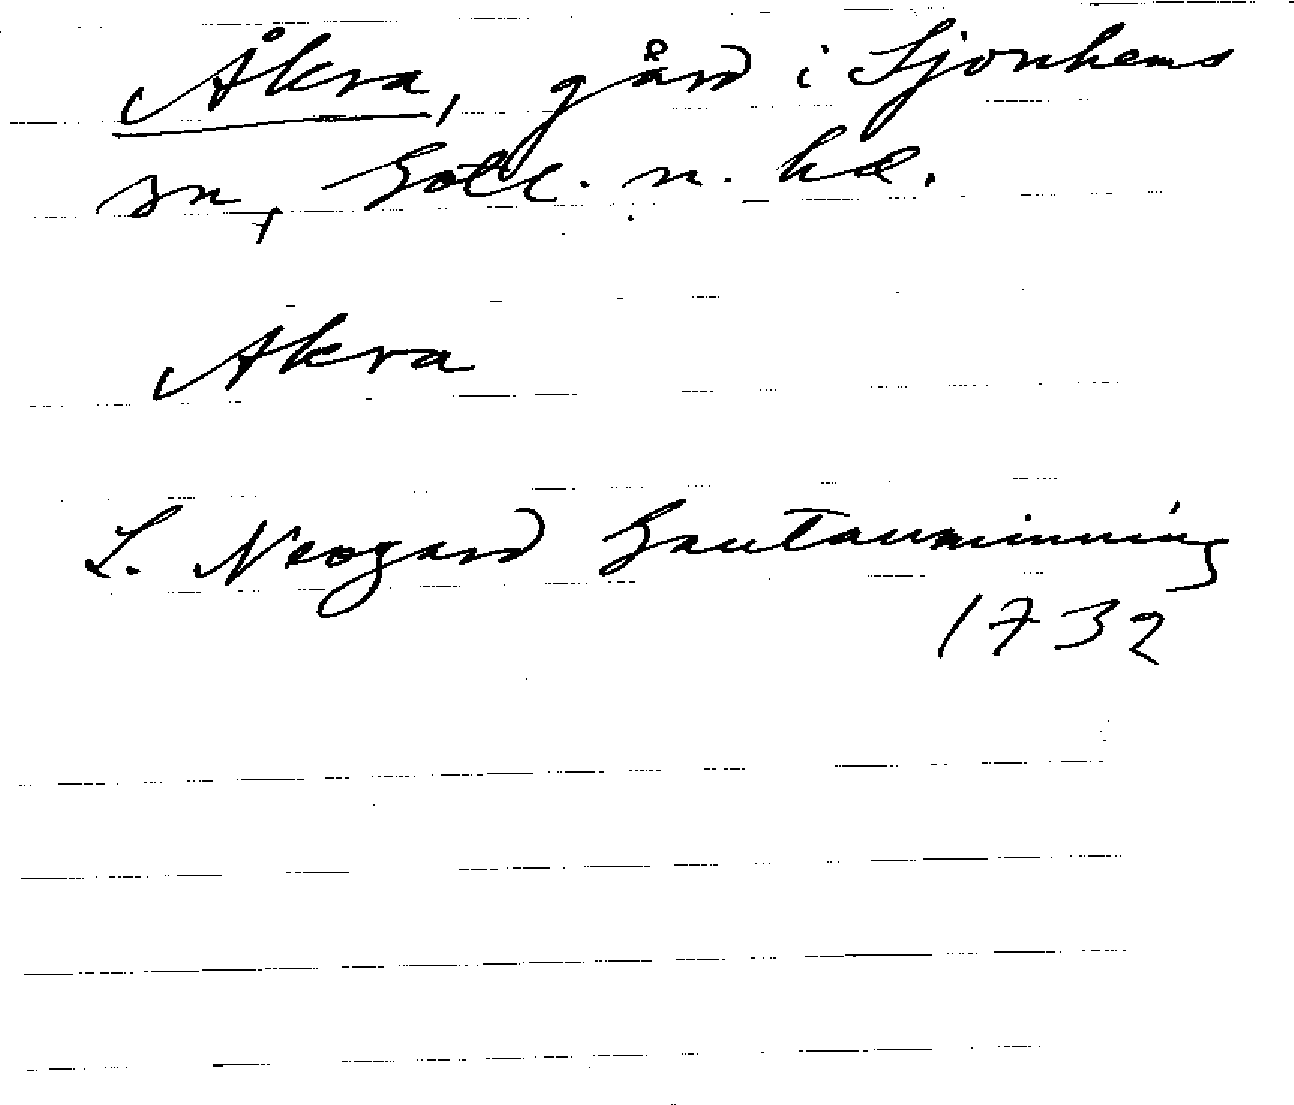 Åkra, gård i Sjonhems
sn, Gotl. n. hd.
Akra
L. Neogard Gautauminning
1732